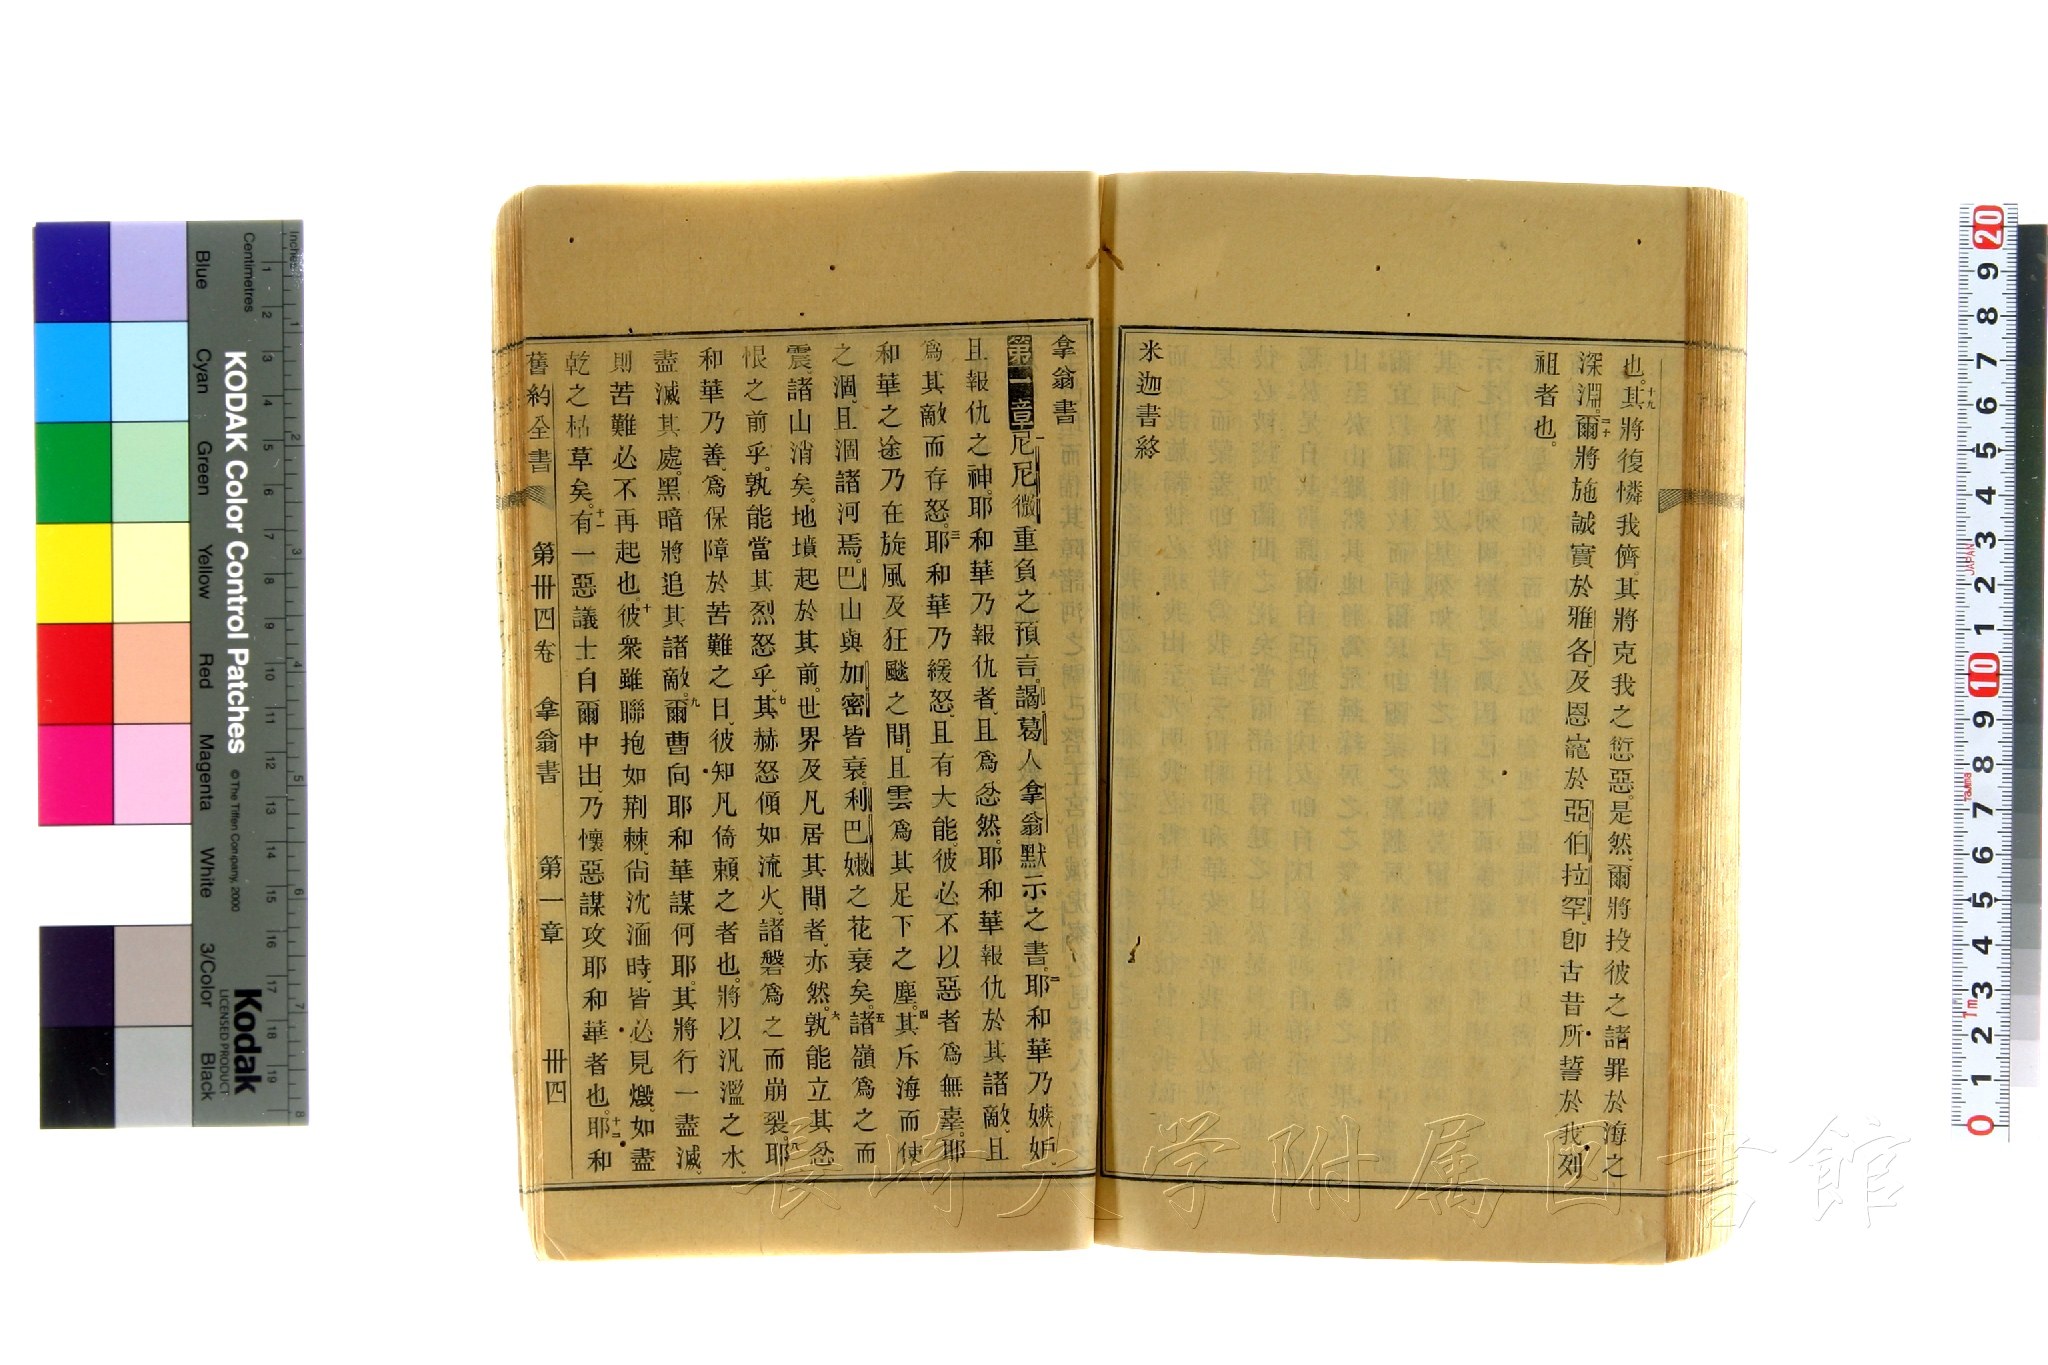 也。十九其將復憐我儕。其將克我之愆惡。是然、爾將投彼之諸罪於海之
深淵。二十爾將施誠實於雅各、及恩寵於亞伯拉罕、卽古昔所誓於我列
祖者也。
米迦書終
拿翁書
第一章一尼尼微重負之預言。謁葛人拿翁默示之書。二耶和華乃嫉妒、
且報仇之神。耶和華乃報仇者、且爲忿然。耶和華報仇於其諸敵、且
爲其敵而存怒。三耶和華乃緩怒、且有大能。彼必不以惡者爲無辜。耶
和華之途乃在旋風及狂颷之間。且雲爲其足下之塵。四其斥海而使
之涸、且涸諸河焉。巴山與加密皆衰。利巴嫩之花衰矣。五諸嶺爲之而
震。諸山消矣。地墳起於其前。世界及凡居其間者、亦然。六孰能立其忿
恨之前乎。孰能當其烈怒乎。七其赫怒傾如流火。諸磐爲之而崩裂。耶
和華乃善、爲保障於苦難之日。彼知凡倚賴之者也。八將以汎濫之水、
盡滅其處。黑暗將追其諸敵。九爾曹向耶和華謀何耶。其將行一盡滅。
則苦難必不再起也。十彼衆雖聯抱如荆棘、尙沈湎時、皆必見燬、如盡
乾之枯草矣。十一有一惡議士自爾中出、乃懷惡謀攻耶和華者也。十二耶和
舊約全書 第卅四卷 拿翁書 第一章 卅四
長崎大学附属図書館
KODAK Color Control Patches
©The Tiffen Company, 2000
Kodak
LICENSED PRODUCT
Blue Cyan Green Yellow Red Magenta White 3/Color Black
Inches
Centimetres
1 2 3 4 5 6 7 8 9 10 11 12 13 14 15 16 17 18 19
1 2 3 4 5 6 7 8
20 9 8 7 6 5 4 3 2 1 10 9 8 7 6 5 4 3 2 1 0
JAPAN
Tajima
1m